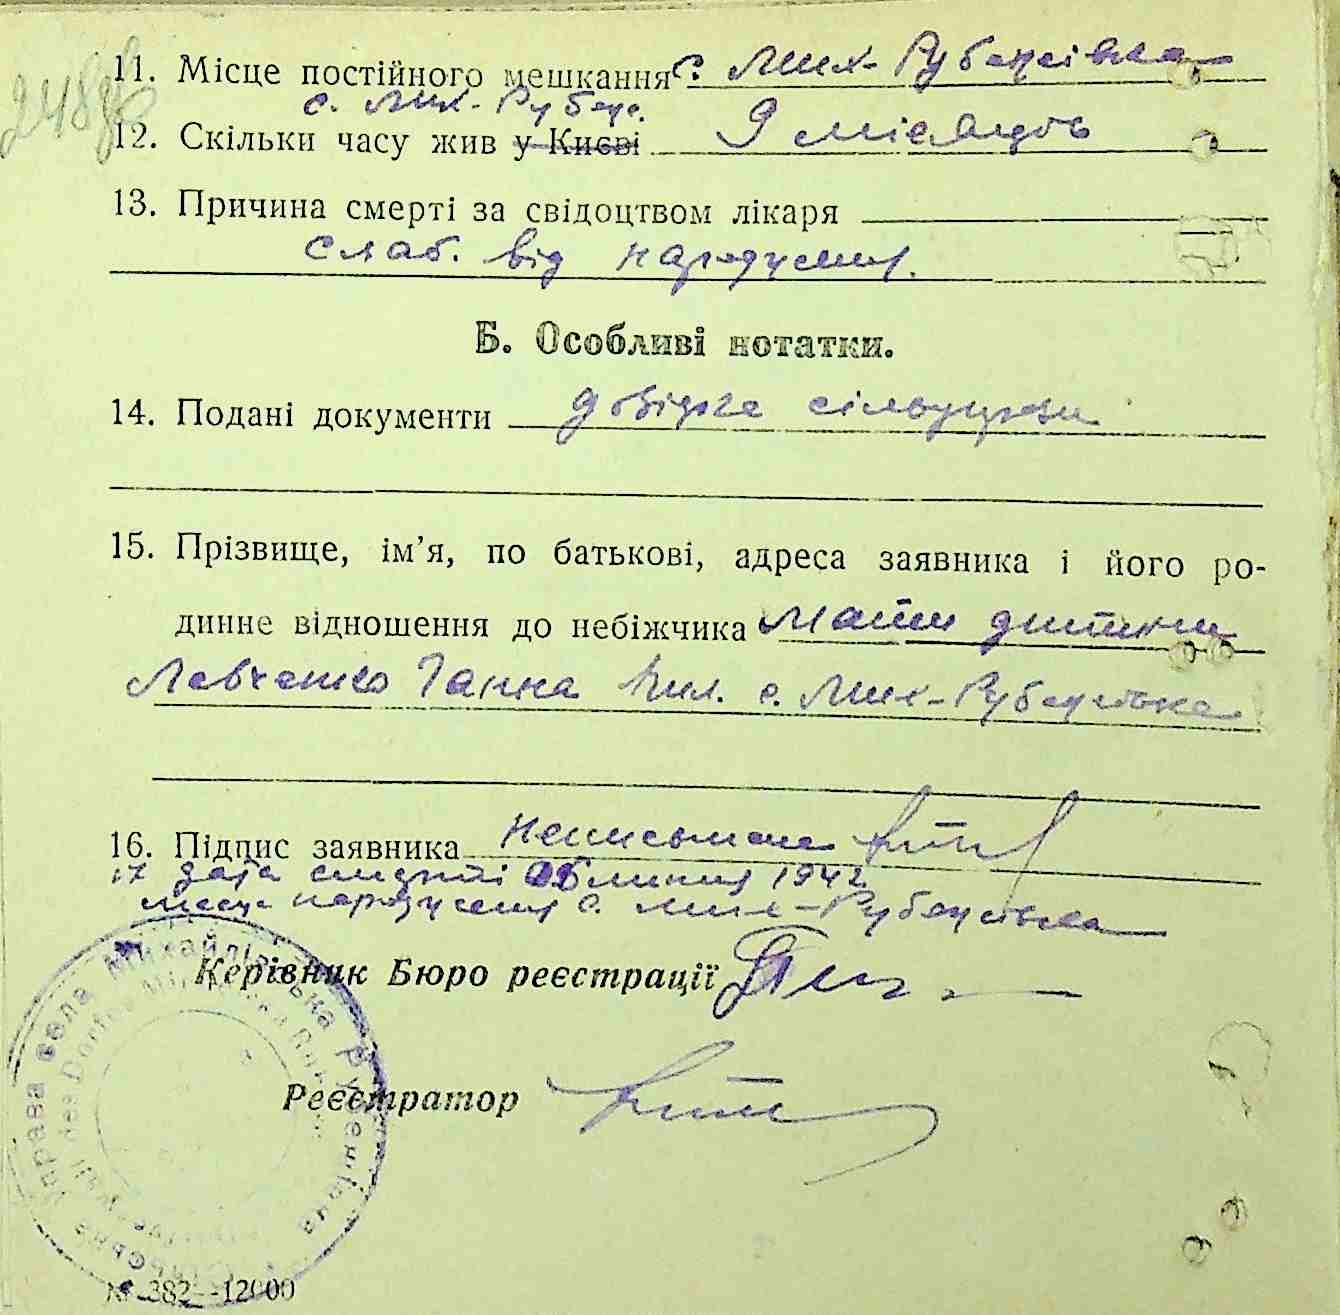 248
11. Місце постійного мешкання с. Мих-Рубенсівка
с. Мих-Рубен.
12. Скільки часу жив у Києві 9 місяців
13. Причина смерті за свідоцтвом лікаря
слаб. від народження.
Б. Особливі нотатки.
14. Подані документи довідка сільуправи
15. Прізвище, ім’я, по батькові, адреса заявника і його ро-
динне відношення до небіжчика мати дитини
Левченко Ганна Пил. с. Мих-Рубенсівка
16. Підпис заявника неписьмена
17 дата смерті 05 липня 1942
місце народження с. Мих-Рубенсівка
Керівник Бюро реєстрації
Реєстратор
Управа села Михайлівська Рубенівка
№ 382—12000